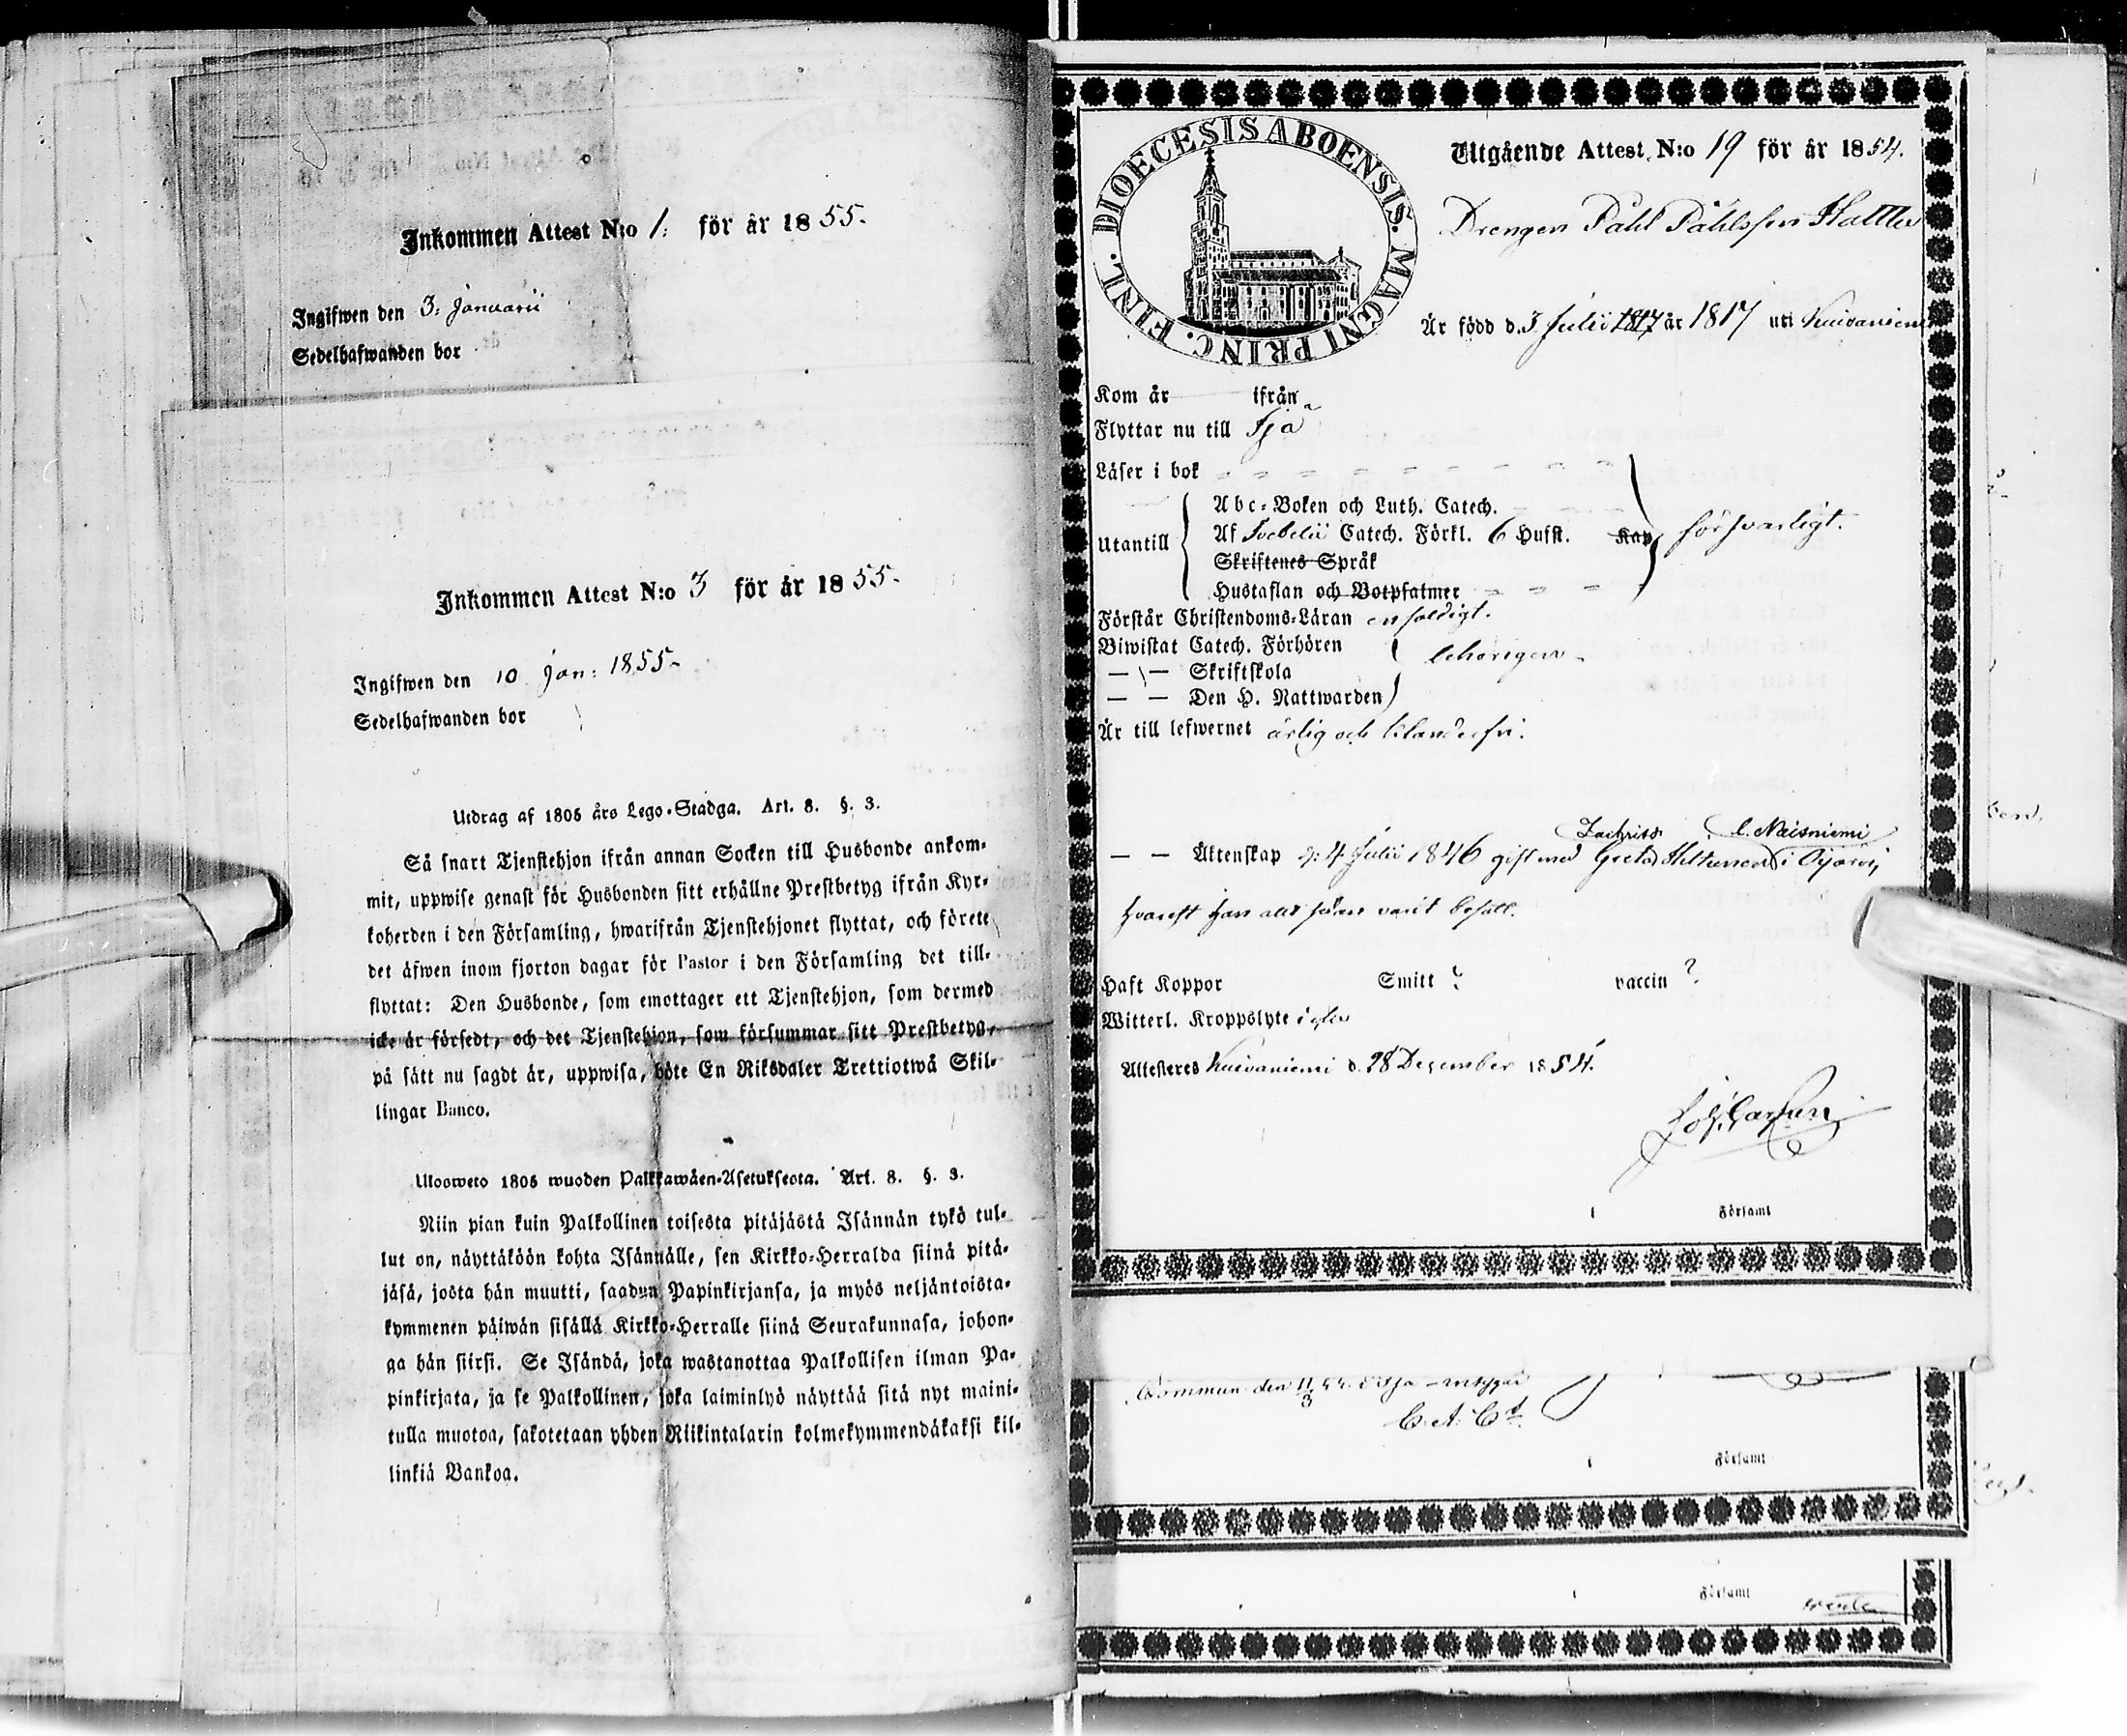 Inkommen Attest N:o 1. för år 1855.
Ingifwen den 3. Januarii
Sedelhafwanden bor
Inkommen Attest N:o 3 för år 1855.
Ingifwen den 10 Jan: 1855
Sedelhafwanden bor
Utdrag af 1805 års Lego-Stadga. Art. 8. §. 3.
Så snart Tjenstehjon ifrån annan Socken till Husbonde ankom-
mit, uppwise genast för Husbonden sitt erhållne Prestbetyg ifrån Kyr-
koherden i den Församling, hwarifrån Tjenstehjonet flyttat, och förete
det äfwen inom fjorton dagar för Pastor i den Församling det till-
flyttat: Den Husbonde, som emottager ett Tjenstehjon, som dermed
icke är försedt, och det Tjenstehjon, som försummar sitt Prestbetyg,
på sätt nu sagdt är, uppwisa, böte En Riksdaler Trettiotwå Skil-
lingar Banco.
Uloswето 1805 wuoden Palkkawäen-Asetuksesta. Art. 8. §. 3.
Niin pian kuin Palkollinen toisesta pitäjästä Isännän tykö tul-
lut on, näyttäköön kohta Isännälle, sen Kirkko-Herralda siinä pitä-
jäsä, josta hän muutti, saadun Papinkirjansa, ja myös neljäntoista-
kymmenen päiwän sisällä Kirkko-Herralle siinä Seurakunnasa, johon-
ga hän siirsi. Se Isändä, joka wastanottaa Palkollisen ilman Pa-
pinkirjata, ja se Palkollinen, joka laiminlyö näyttää sitä nyt maini-
tulla muotoa, sakotetaan yhden Riikintalarin kolmekymmendäkaksi kil-
linkiä Bankoa.
DIOECESIS ABOENSIS. MAGNI PRINC. FINL.
Utgående Attest N:o 19 för år 1854.
Drengen Påhl Påhlsson
Är född d. 3 Julii 1817 år 1817 uti Kuivaniemi
Kom år ifrån
Flyttar nu till Ijå
Läser i bok
Abc-Boken och Luth. Catech.
Utantill Af Svebelii Catech. Förkl. 6 Hufst. Kap försvarligt.
Skriftenes Språk
Hustaflan och Botpsalmer
Förstår Christendoms-Läran enfaldigt.
Biwistat Catech. Förhören behörigen
— — Skriftskola
— — Den H. Nattwarden
Är till lefwernet ärlig och klanderfri.
Zachriss.
— — Äktenskap d: 4 Julii 1846 gift med Greta i
hvarest han allt sedan varit bosatt.
Haft Koppor Smitt ? vaccin ?
Witterl. Kroppslyte
Attesteres Kuivaniemi d. 28 December 1854.
i Församl
Kommun. den
C. A. C
i Församl
i Församl